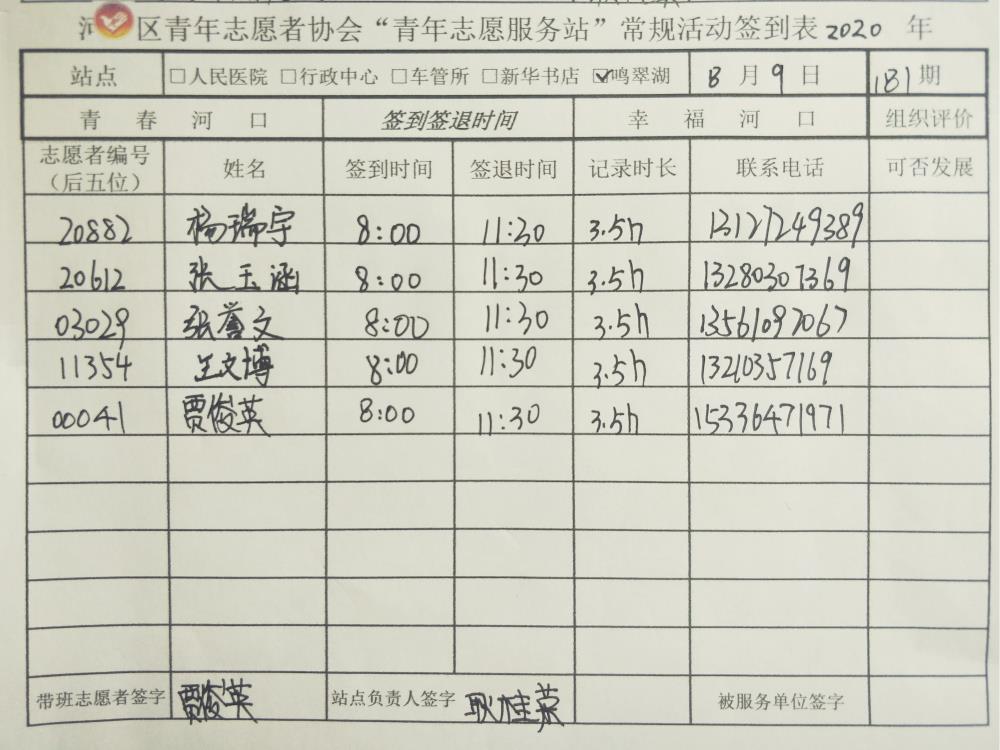 河口区青年志愿者协会“青年志愿服务站”常规活动签到表 2020 年
站点 □人民医院 □行政中心 □车管所 □新华书店 ☑鸣翠湖 8 月 9 日 181 期
青春河口 签到签退时间 幸福河口 组织评价
志愿者编号（后五位） 姓名 签到时间 签退时间 记录时长 联系电话 可否发展
20882 杨瑞宇 8:00 11:30 3.5h 13127249389
20612 张玉涵 8:00 11:30 3.5h 13280307369
03029 张誉文 8:00 11:30 3.5h 13561097067
11354 王文博 8:00 11:30 3.5h 13210357169
00041 贾俊英 8:00 11:30 3.5h 15336471971
带班志愿者签字 贾俊英 站点负责人签字 耿桂荣 被服务单位签字